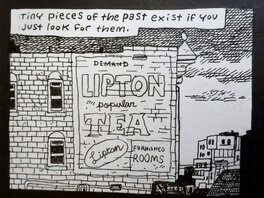 Tiny pieces of the past exist if you
just look for them.
DEMAND
LIPTON
popular
TEA
Lipton
FURNISHED
ROOMS